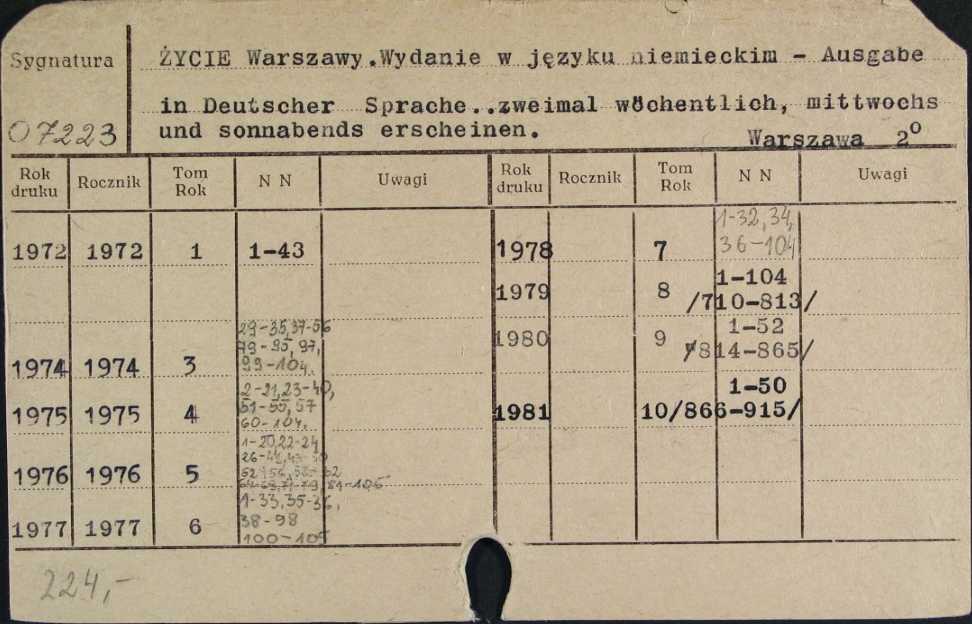 Sygnatura
07223
ŻYCIE Warszawy.Wydanie w języku niemieckim - Ausgabe
in Deutscher Sprache..zweimal wöchentlich, mittwochs
und sonnabends erscheinen.
Warszawa 2º
Rok druku Rocznik Tom Rok N N Uwagi Rok druku Rocznik Tom Rok N N Uwagi
1972 1972 1 1-43
29-35,37-56
79-95,97,
99-104.
1974 1974 3
2-21,23-40,
51-55,57
60-104.
1975 1975 4
1-20,22-24
1976 1976 5
81-105
1-33,35-36,
38-98
100-105
1977 1977 6
1-32,34,
36-104
1978 7
1-104
1979 8 /710-813/
1-52
1980 9 /814-865/
1-50
1981 10/866-915/
224,-